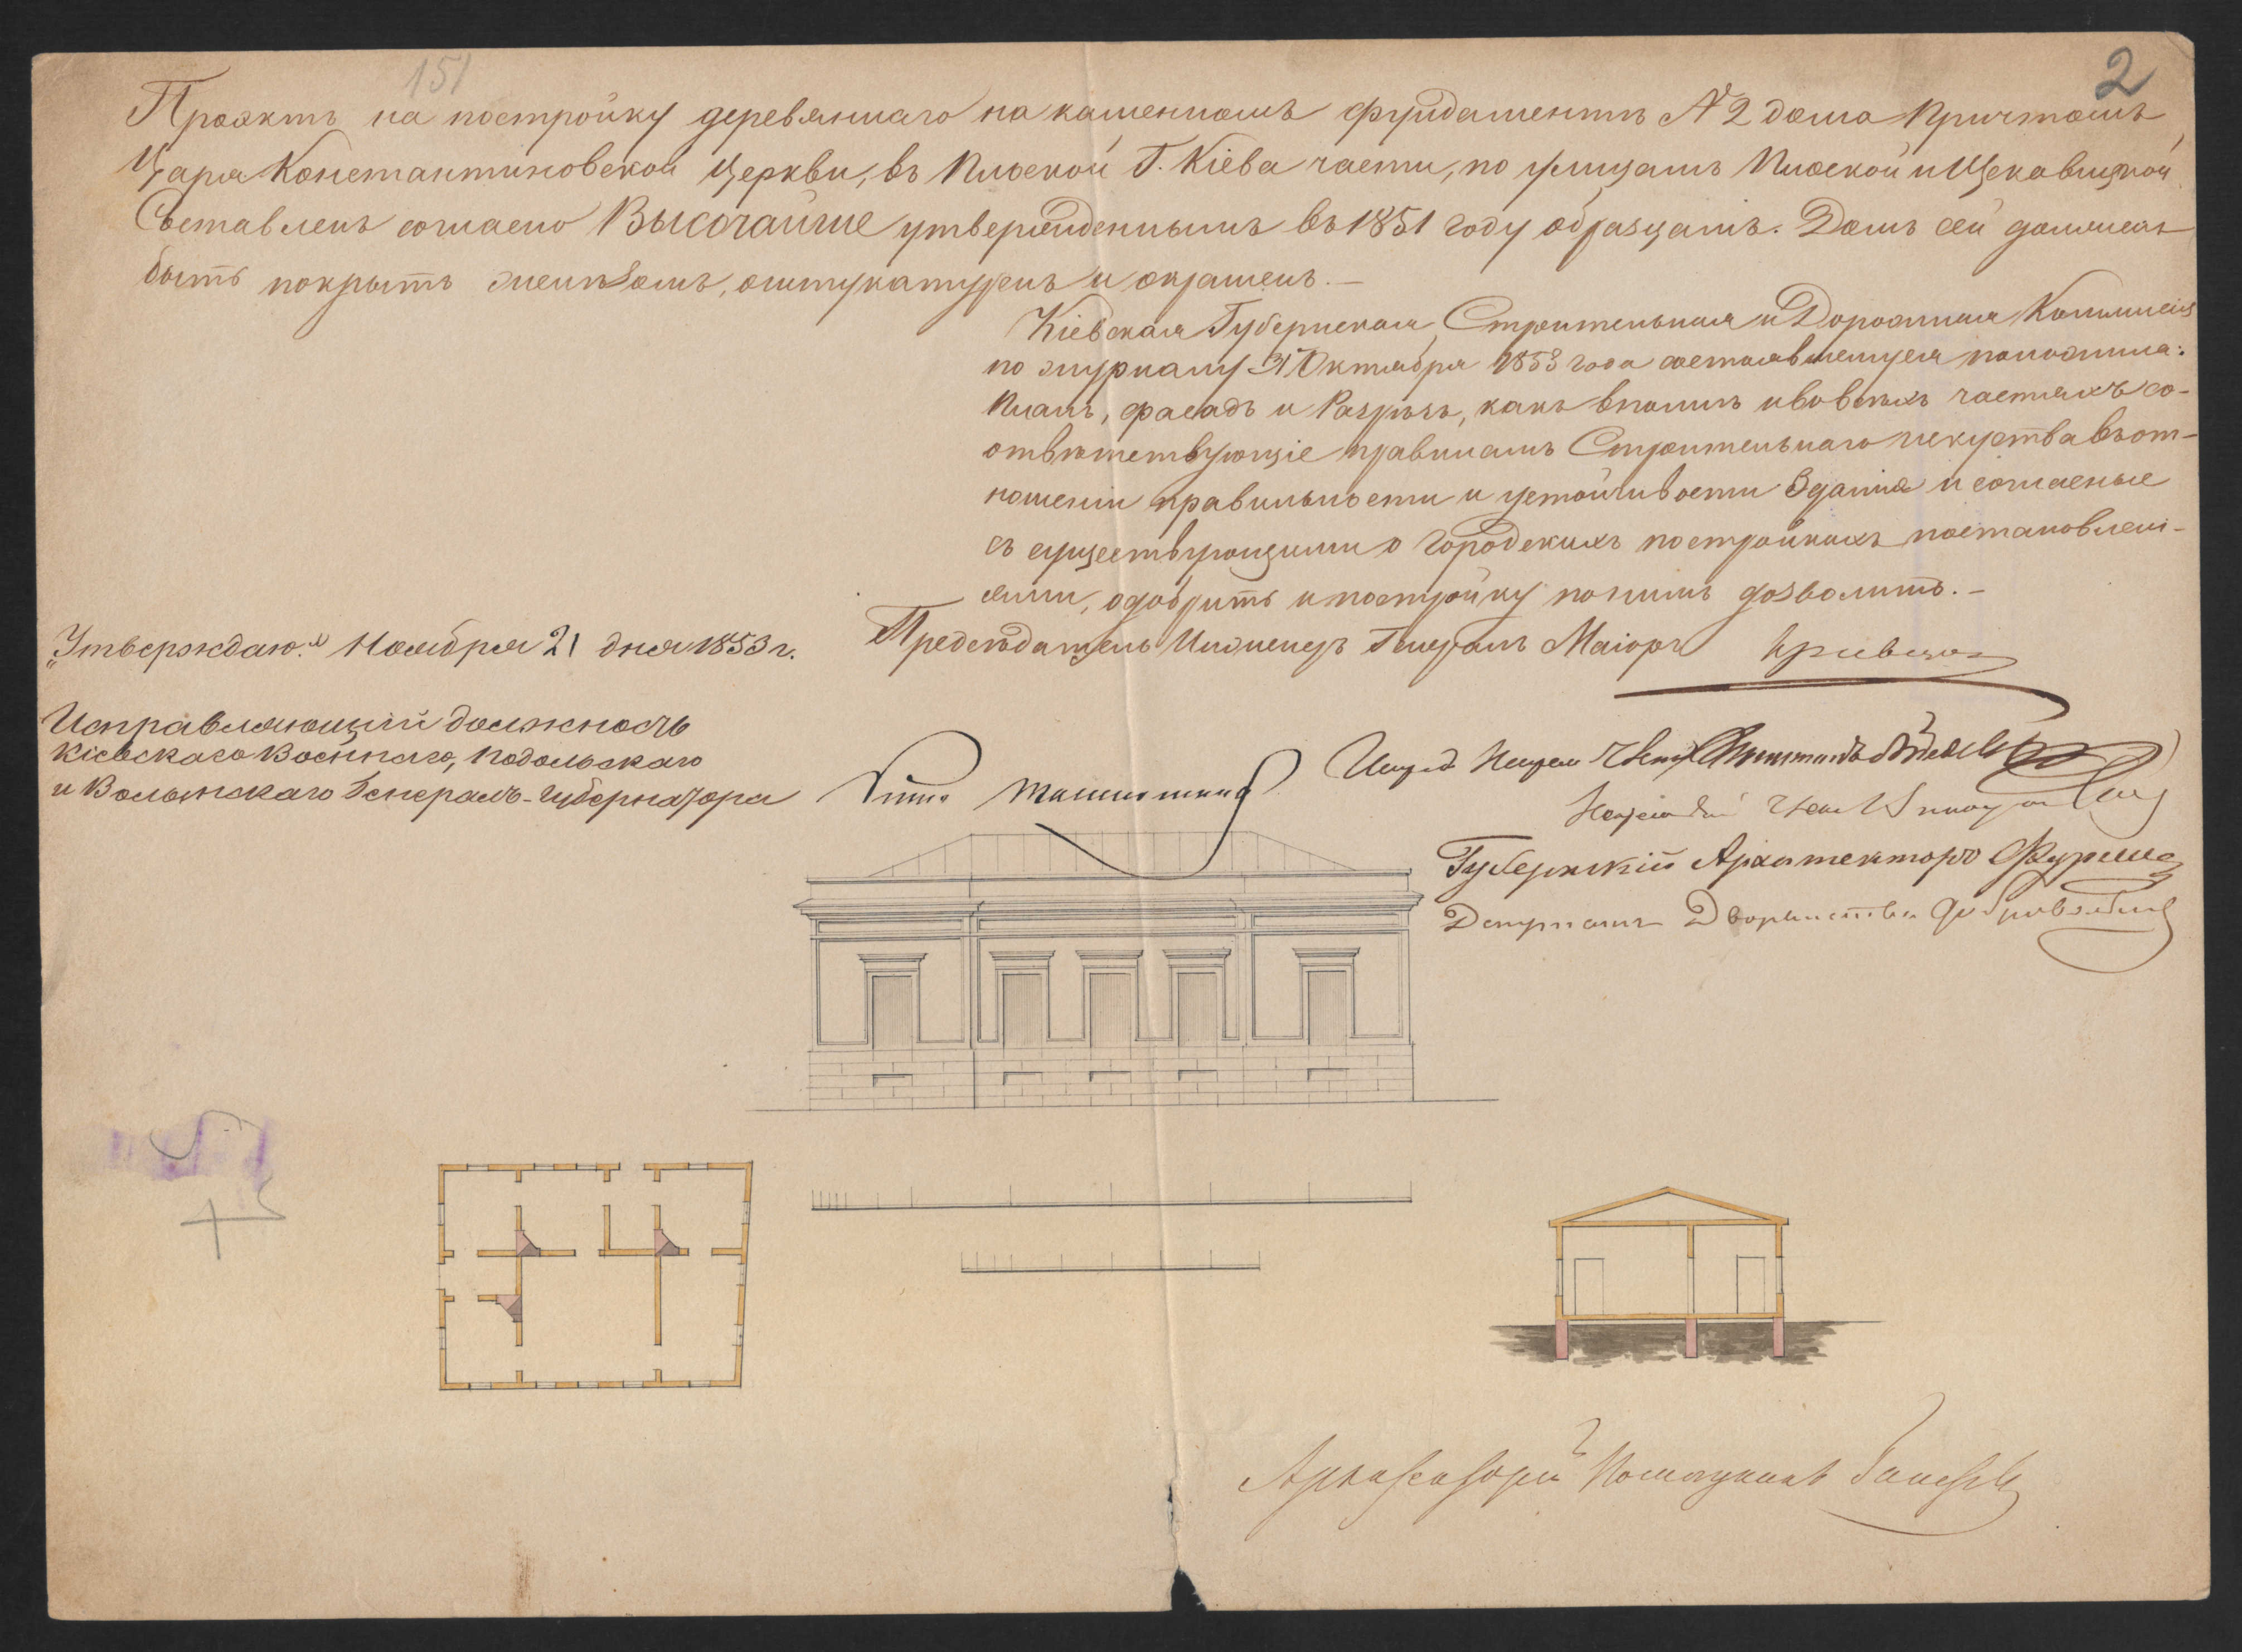 151
2
Проэктъ на постройку деревяннаго на каменномъ фундаментѣ № 2 дома Причтомъ
Царе Константиновской Церкви, въ Плоской Г. Кіева части, по улицамъ Плоской и Щекавицкой
Составленъ согласно Высочайше утвержденнымъ въ 1851 году образцамъ. Домъ сей долженъ
быть покрытъ желѣзомъ, оштукатуренъ и окрашенъ. —
Кіевская Губернская Строительная и Дорожная Коммисія
по журналу 31 Октября 1853 года состоявшемуся положила:
Планъ, фасадъ и Разрѣзъ, какъ вполнѣ и во всѣхъ частяхъ со-
отвѣтствующіе правиламъ Строительнаго искуства въ от-
ношеніи правильности и устойчивости Зданія и согласные
съ существующими о Городскихъ постройкахъ постановлені-
ями, одобрить и постройку по нимъ дозволить. —
„Утверждаю.“ Ноября 21 дня 1853 г.
Предсѣдатель Инженеръ Генералъ Маіоръ
Исправляющій должность
Кіевскаго Военнаго, Подольскаго
и Волынскаго Генералъ-Губернатора
Губернскій Архитекторъ
Депутатъ Дворянства
Помощникъ